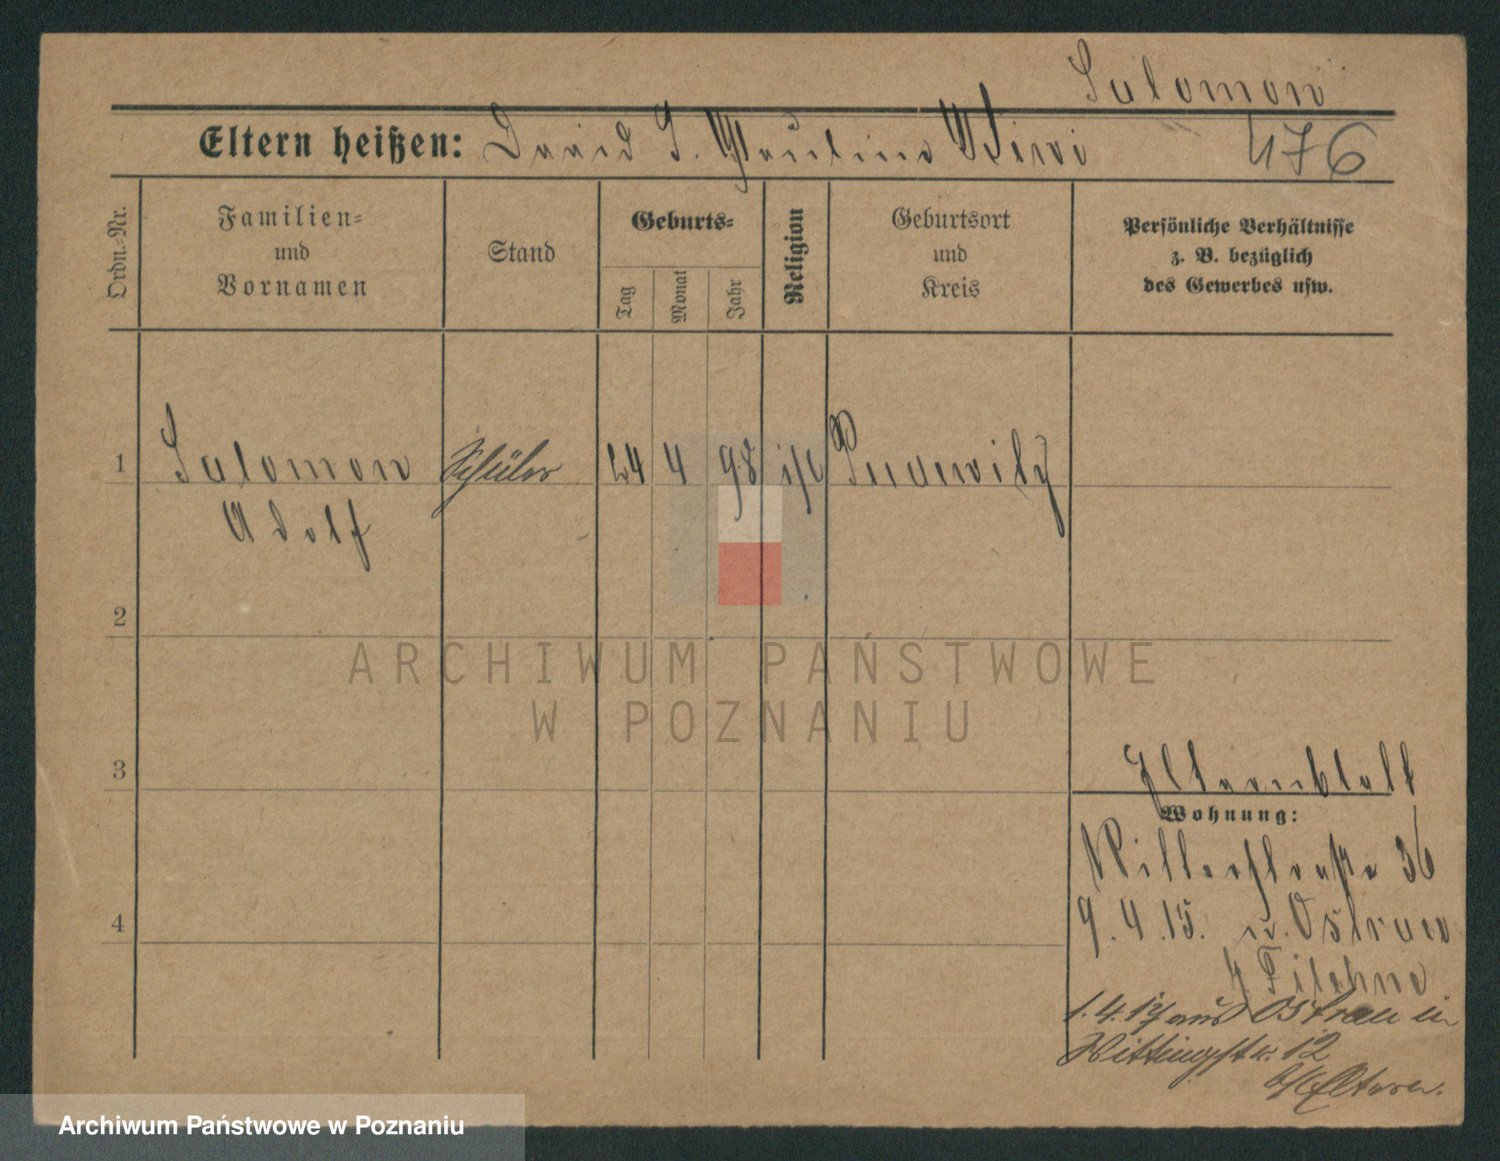 Salomon
Eltern heißen: David S. Pauline
476
Ordn.=Nr.
Familien=
und
Vornamen
Stand
Geburts=
Tag
Monat
Jahr
Religion
Geburtsort
und
Kreis
Persönliche Verhältnisse
z. B. bezüglich
des Gewerbes usw.
1 Salomon Schüler 24 4 98 isr Pudewitz
Adolf
2
ARCHIWUM PAŃSTWOWE
W POZNANIU
3
Elternblatt
Wohnung:
Ritterstraße 36
9.4.15. n. Ostrau
b/ Filehne
1.4.17 aus Ostrau in
12
b/ Eltern.
4
Archiwum Państwowe w Poznaniu